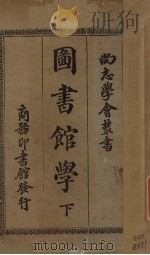 尚志學會叢書
圖書館學 下
商務印書館發行